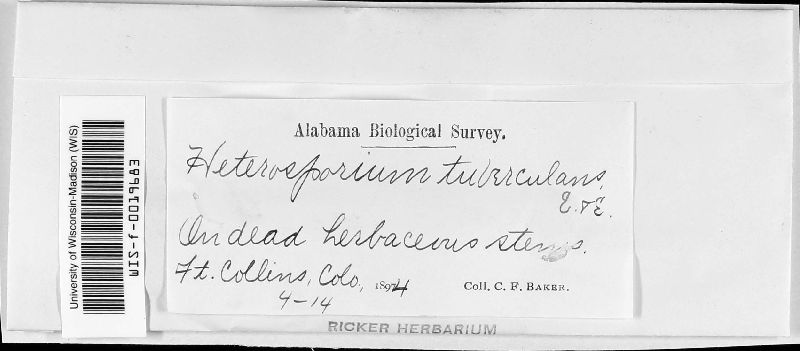 University of Wisconsin-Madison (WIS)
WIS-f-0019983
Alabama Biological Survey.
Heterosporium tuberculans,
E. & E.
On dead herbaceous stems.
Ft. Collins, Colo., 1894 Coll. C. F. BAKER.
4-14
RICKER HERBARIUM